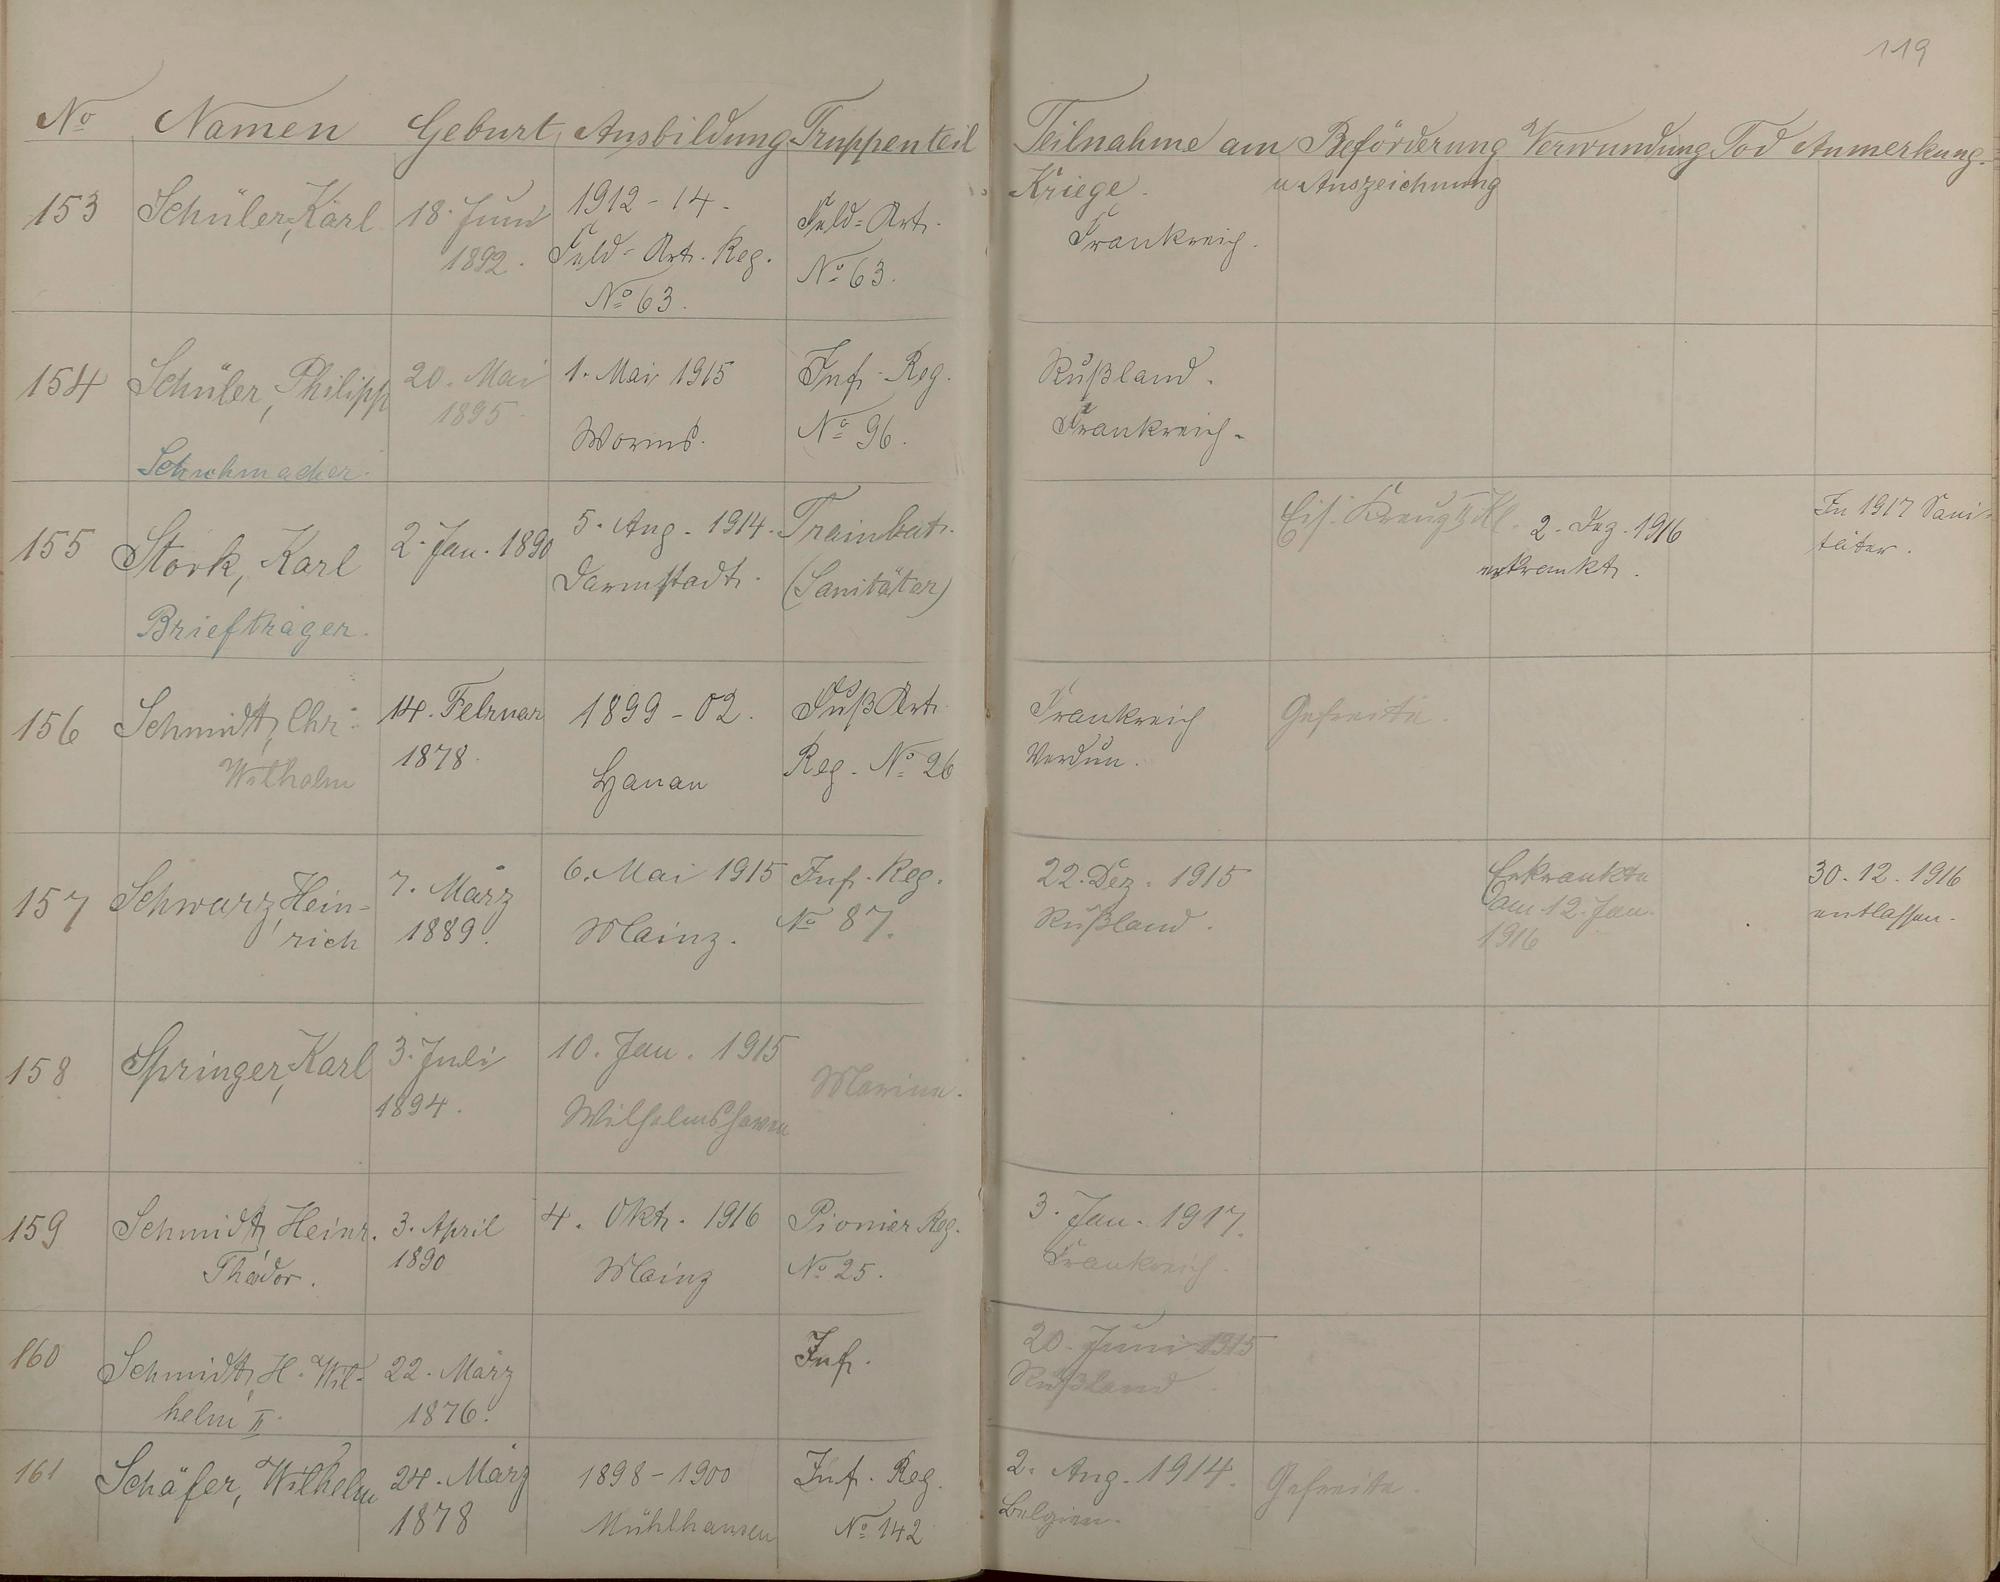 119
No Namen Geburt Ausbildung Truppenteil Teilnahme am Kriege. Beförderung u. Auszeichnung Verwundung Tod Anmerkung.
153 Schüler, Karl 18. Juni 1892. 1912-14. Feld-Art. Reg. No 63. Feld-Art. No 63. Frankreich.
154 Schüler, Philipp Schuhmacher. 20. Mai 1895. 1. Mai 1915 Worms. Inf. Reg. No 96. Rußland. Frankreich.
155 Stork, Karl Briefträger. 2. Jan. 1890 5. Aug. 1914. Darmstadt. Trainbat. (Sanitäter) Eis. Kreuz II Kl. 2. Dez. 1916 erkrankt. In 1917 Sanitäter.
156 Schmidt, Chr. Wilhelm 14. Februar 1878. 1899-02. Hanau Fuß Art. Reg. No 26 Frankreich Verdun. Gefreite.
157 Schwarz, Hein-rich 7. März 1889. 6. Mai 1915 Mainz. Inf. Reg. No 87. 22. Dez. 1915 Rußland. Erkrankte am 12. Jan. 1916 30.12.1916 entlassen.
158 Springer, Karl 3. Juli 1894. 10. Jan. 1915 Wilhelmshaven Marine.
159 Schmidt, Heinr. Theodor. 3. April 1890 4. Okt. 1916 Mainz Pionier Reg. No 25. 3. Jan. 1917. Frankreich.
160 Schmidt, H. Wil-helm II. 22. März 1876. Inf. 20. Juni 1915 Rußland.
161 Schäfer, Wilhelm 24. März 1878 1898-1900 Mühlhausen Inf. Reg. No 142 2. Aug. 1914. Belgien. Gefreite.